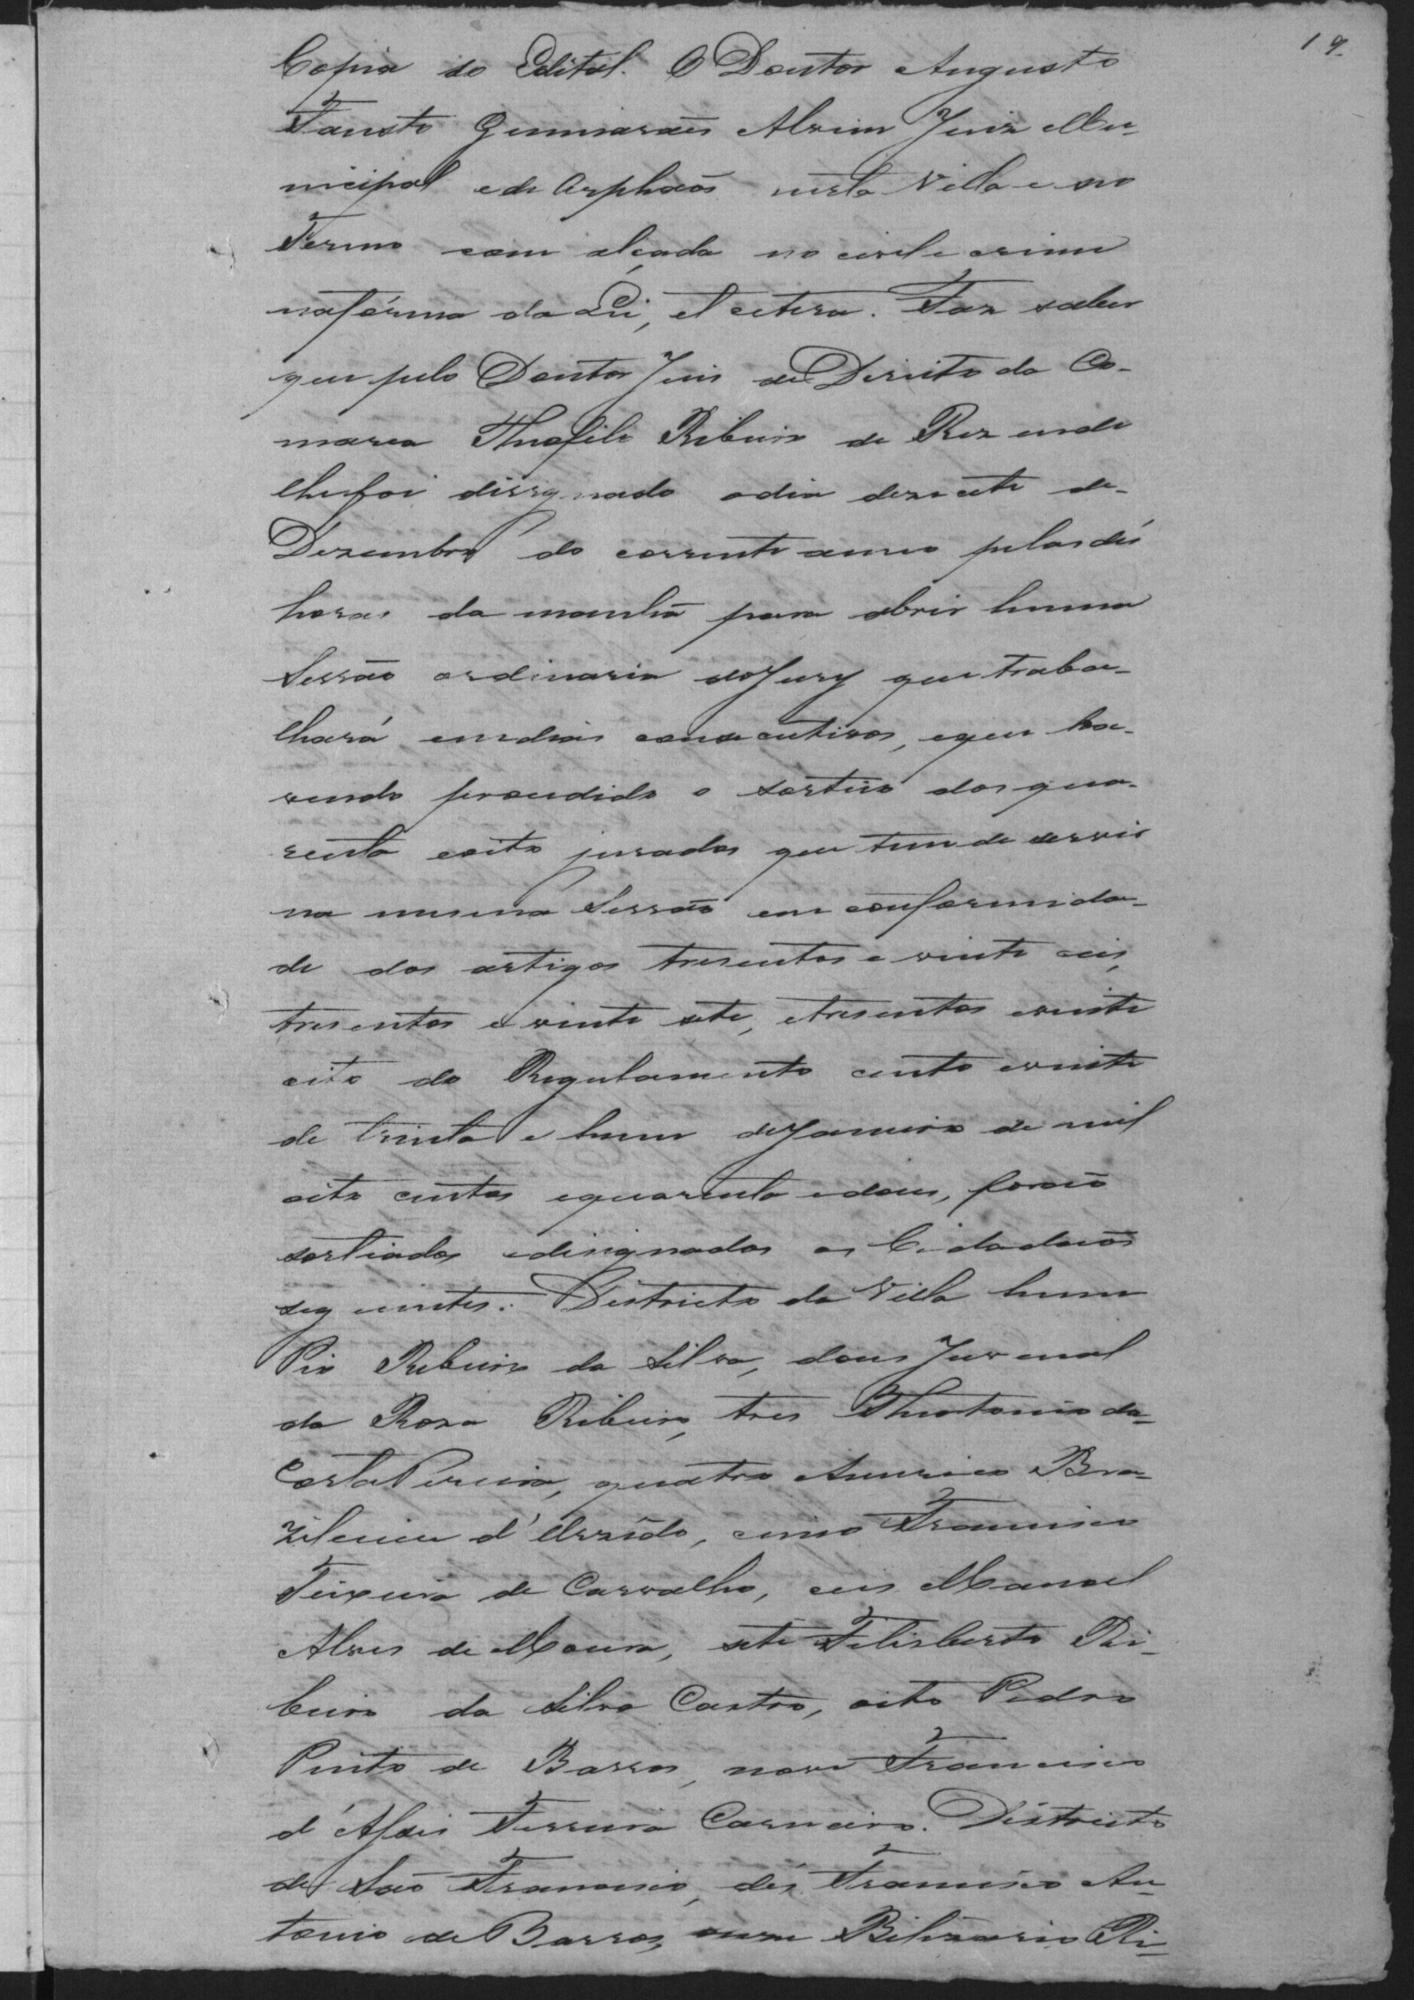 19.
Copia do Edital. O Doutor Augusto
Fausto Guimaraẽs Alvim Juiz Mu-
nicipal e de Orphaõs nesta Villa e seo
Termo com alçada no civel e crime
na fórma da Lei, et cetera. Faz saber
que pelo Doutor Juis de Direito da Co-
marca Theofilo Ribeiro de Rezende
lhe foi dizignado o dia dezacete de
Dezembro do corrente anno pelas dés
horas da manhã para abrir huma
Sessão ordinaria do Jury que traba-
lhará em dias consecutivos, e que ha-
vendo procedido o sorteio dos qua-
renta e oito jurados que tem de servir
na mesma Sessão em conformida-
de dos artigos tresentos e vinte ceis,
tresentos e vinte sete, e tresentos e vinte
oito do Regulamento cento e vinte
de trinta e hum de Janeiro de mil
oito centos e quarenta e dous, foraõ
sortiados e disignados os Cidadaõs
seguintes: Districto da Villa hum
Pio Ribeiro da Silva, dous Juvenal
da Roza Ribeiro, tres Theotonio da
Costa Pereira, quatro Americo Bra-
zileiro d'
cinco Francisco
Teixeira de Carvalho, ceis Manoel
Alves de Moura, sete Felisberto Ri-
beiro da Silva Castro, oito Pedro
Pinto de Barros, nove Francisco
d'Assis Ferreira Carneiro. Districto
de São Francisco, dés Francisco An-
tonio de Barros, onze Bilizario Ri-